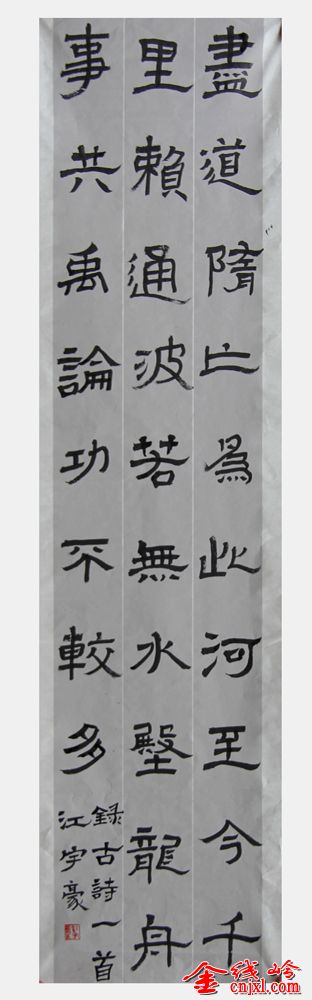 盡道隋亡爲此河至今千
里賴通波若無水壂龍舟
事共禹論功不較多
録古詩一首
江宇豪
金线岭
cnjxl.com